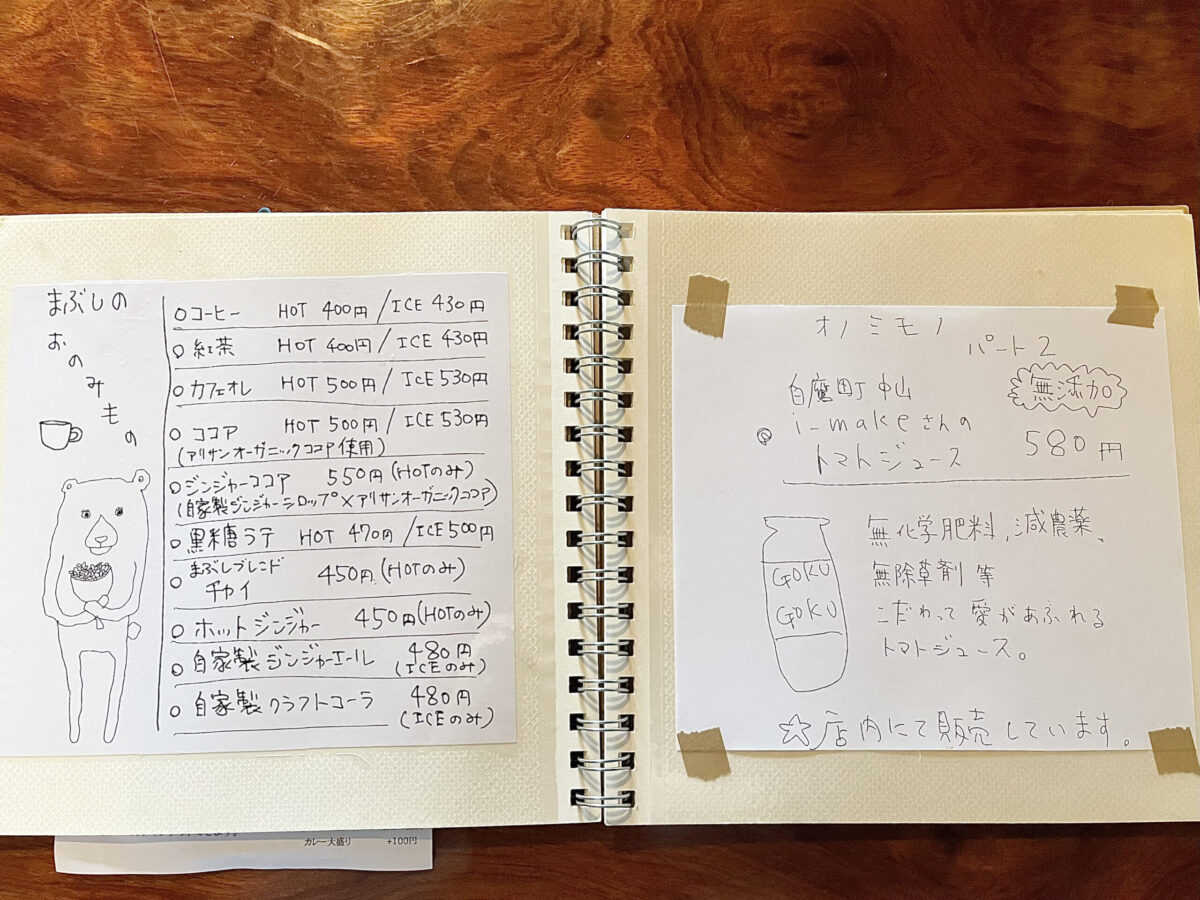 まぶしの
おのみもの
○コーヒー HOT 400円/ICE 430円
○紅茶 HOT 400円/ICE 430円
○カフェオレ HOT 500円/ICE 530円
○ココア HOT 500円/ICE 530円
(アリサンオーガニックココア使用)
○ジンジャーココア 550円(HOTのみ)
(自家製ジンジャーシロップ×アリサンオーガニックココア)
○黒糖ラテ HOT 470円/ICE 500円
○まぶしブレンド
チャイ 450円(HOTのみ)
○ホットジンジャー 450円(HOTのみ)
○自家製ジンジャーエール 480円
(ICEのみ)
○自家製クラフトコーラ 480円
(ICEのみ)
カレー大盛り +100円
オノミモノ
パート2
白鷹町中山
無添加
i-makeさんの
トマトジュース 580円
GOKU
GOKU
無化学肥料、減農薬、
無除草剤等
こだわって愛があふれる
トマトジュース。
☆店内にて販売しています。